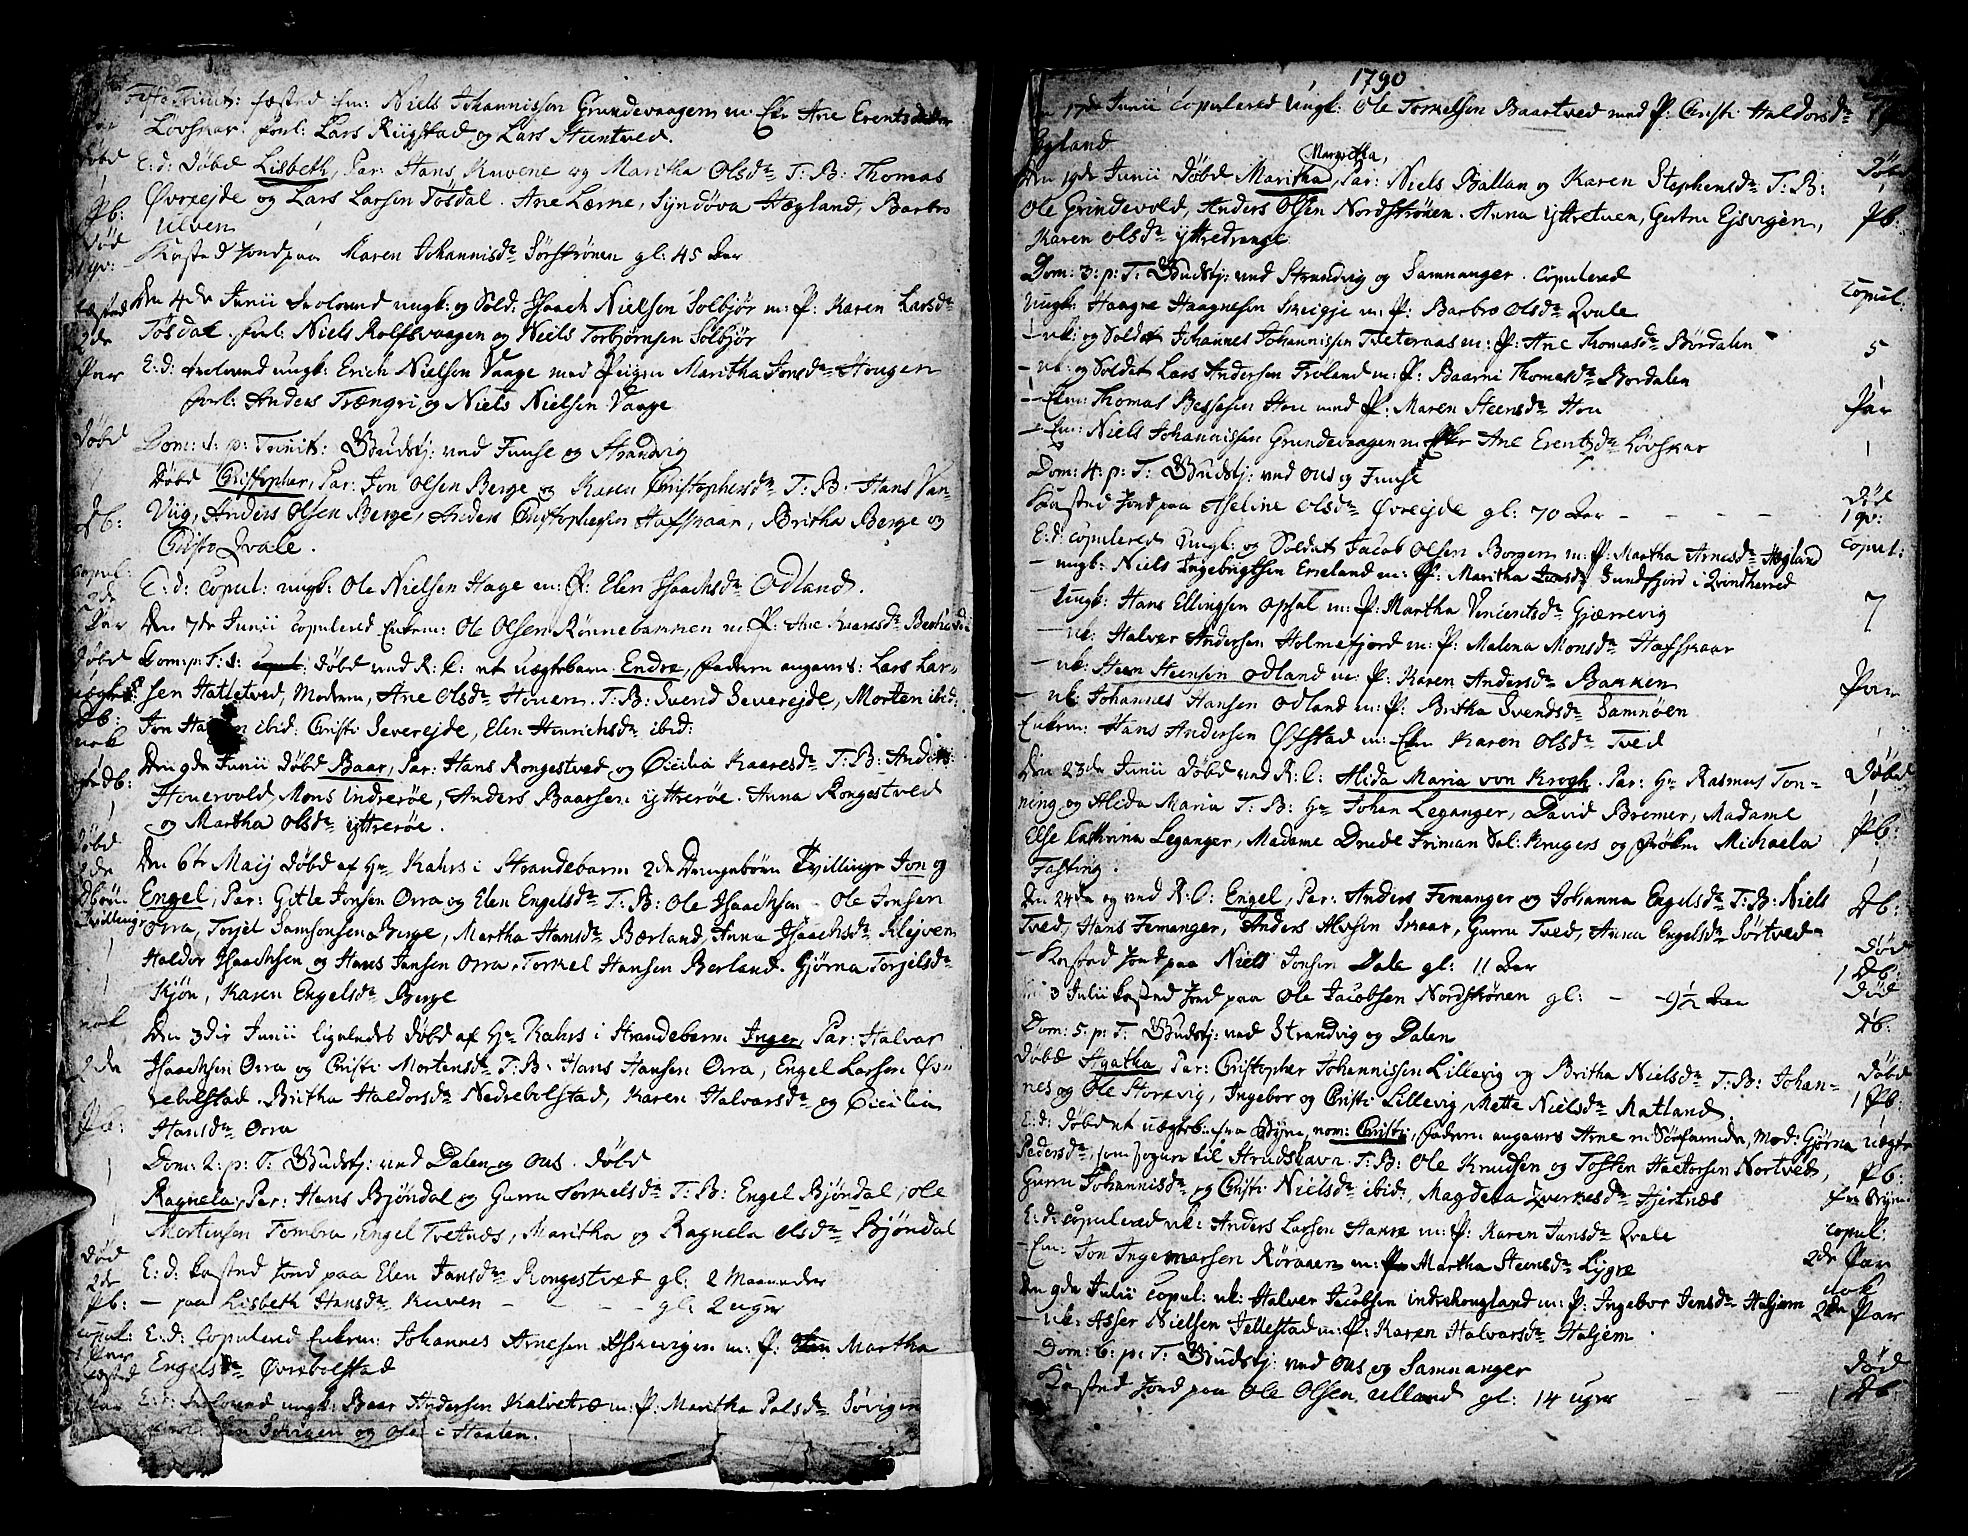 Festo Trinit: fæsted Em: Niels Johannissen Grundevaagen m: Eke Ane Erentsdr
Lövskar. forl: Lars Riigstad og Lars Steentved.
E: d: Döbd Lisbeth, Par: Hans Kuvene og Maritha Olsdr T: B: Thomas
Øvrejde og Lars Larsen Tösdal. Ane Lærne, Syndöva Hægland, Barbro
Ulven
Kasted Jord paa Maren Johannisdr Sörströnen gl: 45 Aar
Den 4de Junii troloved ungk: og Sold: Isaach Nielsen Solbjör m: P: Karen Larsdr
Tösdal. forl: Niels Rolfsvaagen og Niels Torbjörnsen Solbjör
E: d: troloved ungk: Erich Nielsen Vaage med Pigen Maritha Jonsdr Hougen
forl: Anders Trængri og Niels Nielsen Vaage
Dom: 1: p: Trinit: Gudstj: ved Fuuse og Strandvig
Döbd Christopher, Par: Jon Olsen Berge og Karen Christophersdr T: B: Hans Van-
Viig, Anders Olsen Berge, Anders Christophersen Hafskaar, Britha Berge og
Christi Qvale.
E: d: Copul: ungk: Ole Nielsen Hage m: P: Elen Isaachsdr Odland.
Den 7de Junii copulered Enkem: Ole Olsen Rönnebannen m: P: Ane
Dom: p: T: 1: Döbd ved R: C: et uægtebarn Endre, faderen angaves: Lars Lar-
sen Hatletved, Moderen, Ane Olsdr Houen. T: B: Svend Severejde, Morten ibid:
Jon ibid: Christi Severejde, Elen Henrichsdr ibid:
Den 9de Junii Döbd Baar, Par: Hans Rongestved og Cicilia Kaaresdr T: B: Anders
Houevold, Mons Indreröe, Anders Baarsen Yttreröe. Anna Rongestved
og Martha Olsdr Yttreröe.
Den 6te Maij Döbd af Hr Kahrs i Strandebarm 2de Drengebörn Tvillinge Jon og
Engel, Par: Gitle Jonsen Orra og Elen Engelsdr T: B: Ole Isaachsen Ole Jonsen
Orra, Torjel Samsonsen Berge, Martha Hansdr Bærland, Anna Isaachsdr Klejven
Haldor Isaachsen og Hans Jansen Orra, Torkel Hansen Berland. Gjörna Torjelsdr
Kjön, Karen Engelsdr Berge
Den 3die Junii ligeledes Döbd af Hr Kahrs i Strandebarm Inger, Par: Halvar
Isaachsen Orra og Christi Mortensdr T: B: Hans Hansen Orra, Engel Larsen Øv-
rebolstad. Britha Haldorsdr Nedrebolstad, Karen Halvarsdr og Cicilia
Hansdr Orra
Dom: 2: p: T: Gudstj: ved Dalen og Ous. Döbd
Ragnela, Par: Hans Bjöndal og Gurra Torkelsdr T: B: Engel Bjöndal, Ole
Mortensen Tombra, Engel Tvetnes, Maritha og Ragnela Olsdr Bjöndal
E: d: kasted Jord paa Elen Jansdr Rongestved gl: 2 Maaneder
— paa Lisbeth Hansdr Kuven — — — gl: 2 uger
E: d: Copulered Enkem: Johannes Arnesen Eskevigen m: P: Martha
Engelsdr Øvrebolstad
E: d: troloved ungk: Baar Andersen Kalvetræ m: P: Maritha Palsdr Sövigen
Sövigen og Ole i Haalen.
Döbd
Pb:
Död
1 qv:
fæsted
2de
Par
Döbd
Db:
Copul:
2de
Par
Döbd
uægte
Pb:
nok
Db:
Döbd
2de
Dbörn
Tvillinger
nok
2de
Pb:
Död
2de
Pb:
Copul:
1 Par
fæsted
1790
17de Junii copulered Ungk: Ole Torkelsen Baartved med P: Christi Haldorsdr
Øgland
Margretha,
Den 19de Junii Döbd Maritha, Par: Niels Ballan og Karen Stephensdr T: B:
Ole Grindevold, Anders Olsen Nordströnen. Anna Yttretuen, Gertru Ejsvigen,
Karen Olsdr Yttredrange
Dom: 3: p: T: Gudstj: ved Strandvig og Samnanger. Copulered
Ungk: Haagne Haagnesen Skeigje m: P: Barbro Olsdr Qvale
— uk: og Soldat Johannes Johannissen Tveteraas m: P: Ane Thomasdr Bördalen
— uk: og Soldat Lars Andersen Fröland m: P: Baarni Thomasdr Bordalen
— Ekm: Thomas Bessesen Hou med P: Maren Steensdr Hou
— Em: Niels Johannissen Grundevaagen m: Eke Ane Erentsdr Lövskar
Dom: 4: p: T: Gudstj: ved Ous og Fuuse
Kasted Jord paa Aseline Olsdr Øvrejde gl: 70 Aar — — — —
E: d: copulered Ungk: og Soldat Jacob Olsen Borgen m: P: Martha Arnesdr Høgland
— ungk: Niels Ingebrigtsen Erseland m: P: Maritha Sundfjord i Qvindherred
— Ungk: Hans Ellingsen Opsal m: P: Martha Vincentsdr Gjærrevig
— uk: Halver Andersen Holmefjord m: P: Malena Monsdr Hafskaar
— uk: Steen Steensen Odland m: P: Karen Andersdr Bakken
— uk Johannes Hansen Odland m: P: Britha Svendsdr Samnöen
Enkem: Hans Andersen Øfstad m: Eke Karen Olsdr Tved
Den 23de Junii Döbd ved R: C: Alida Maria von Krogh. Par: Hr Rasmus Ton-
ning og Alida Maria T: B: Hr Johan Leganger, David Bremer, Madame
Else Cathrina Leganger, Madame Drude Friman Sal: Krugers og Fröken Michaela
Fasting.
Den 24de og ved R: C: Engel, Par: Anders Femanger og Johanna Engelsdr T: B: Niels
Tved, Hans Femanger, Anders Alvsen Skaar, Gurru Tved, Anna Engelsdr Sörtved
— Kasted Jord paa Niels Jonsen Dale gl: 11 Aar
3 Julii kasted Jord paa Ole Jacobsen Nordströnen gl: — — 9½ Aar
Dom: 5: p: T: Gudstj: ved Strandvig og Dalen
Döbd Agatha Par: Christopher Johannissen Lillevig og Britha Nielsdr T: B: Johan-
nes og Ole Storevig, Ingebor og Christi Lillevig, Mette Nielsdr Matland.
E: d: Döbd et uægteb: fra Byen, nom: Christi, faderen angaves Arne Mod: Gjörna
Pedersdr, som sogner til Strudshavn. T: B: Ole Knudsen og Tosten Hactorsen Nortved,
Gurru Johannisdr og Christi Nielsdr ibid:, Magdela Qverkesdr Hjertnæs
E: d: copulered uk: Anders Larsen Havre m: P: Karen Jansdr Qvale
— Em: Jon Ingemarsen Röraaen m: P: Martha Steensdr Lygre
Den 9de Julii copul: uk: Halver Jacobsen Indrehougland m: P: Ingebor Jensdr Haljem
— uk: Asser Nielsen Jellestad m: P: Karen Halvarsdr Haljem.
Dom: 6: p: T: Gudstj: ved Ous og Samnanger
Kasted Jord paa Ole Olsen Ulland gl: 14 uger
Döbd
1
Pb:
Copul:
5
Par
Död
1 qv:
Copul:
7
Par
Döbd
1
Pb:
1
Db:
Död
1 Db:
Död
Db:
Döbd
1 Pb:
uægte
Pb:
fra Byen
Copul:
2de Par
nok
2de Par
Död
1 Db